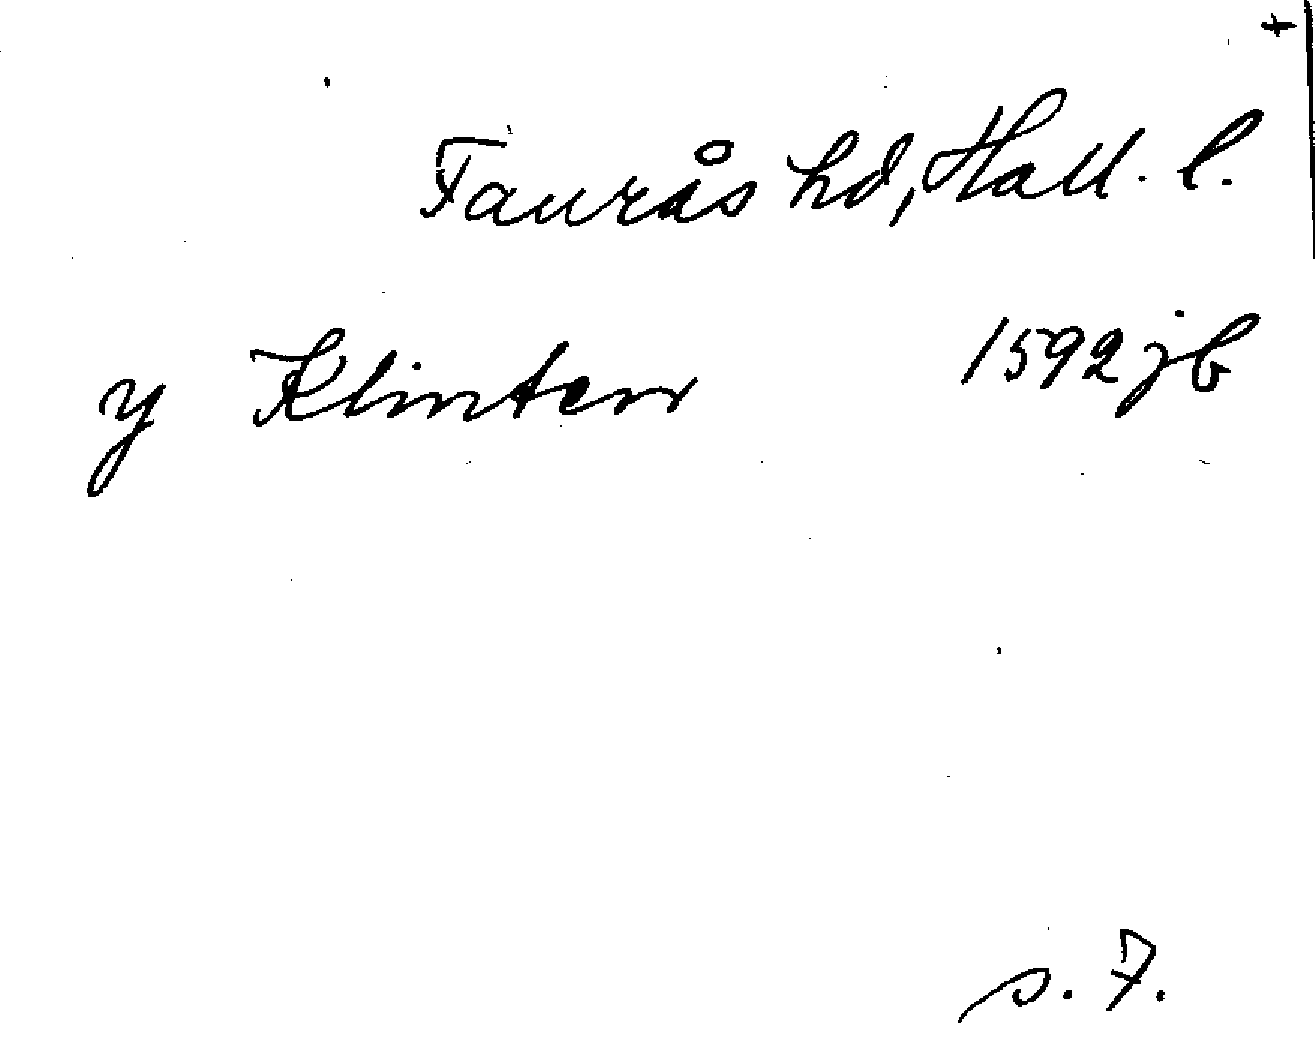 +
Faurås hd, Hall. l.
y Klinten 1592 jb
s. 7.